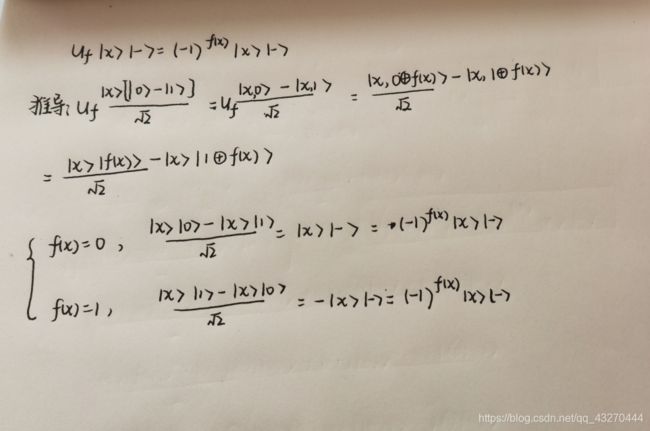 U_f |x>|-> = (-1)^{f(x)} |x>|->
推导: U_f |x>[|0>-|1>]/√2 = U_f |x,0>-|x,1>/√2 = |x,0⊕f(x)>-|x,1⊕f(x)>/√2
= |x>|f(x)>-|x>|1⊕f(x)>/√2
{ f(x)=0, |x>|0>-|x>|1>/√2 = |x>|-> = (-1)^{f(x)} |x>|->
f(x)=1, |x>|1>-|x>|0>/√2 = -|x>|-> = (-1)^{f(x)} |x>|->
https://blog.csdn.net/qq_43270444